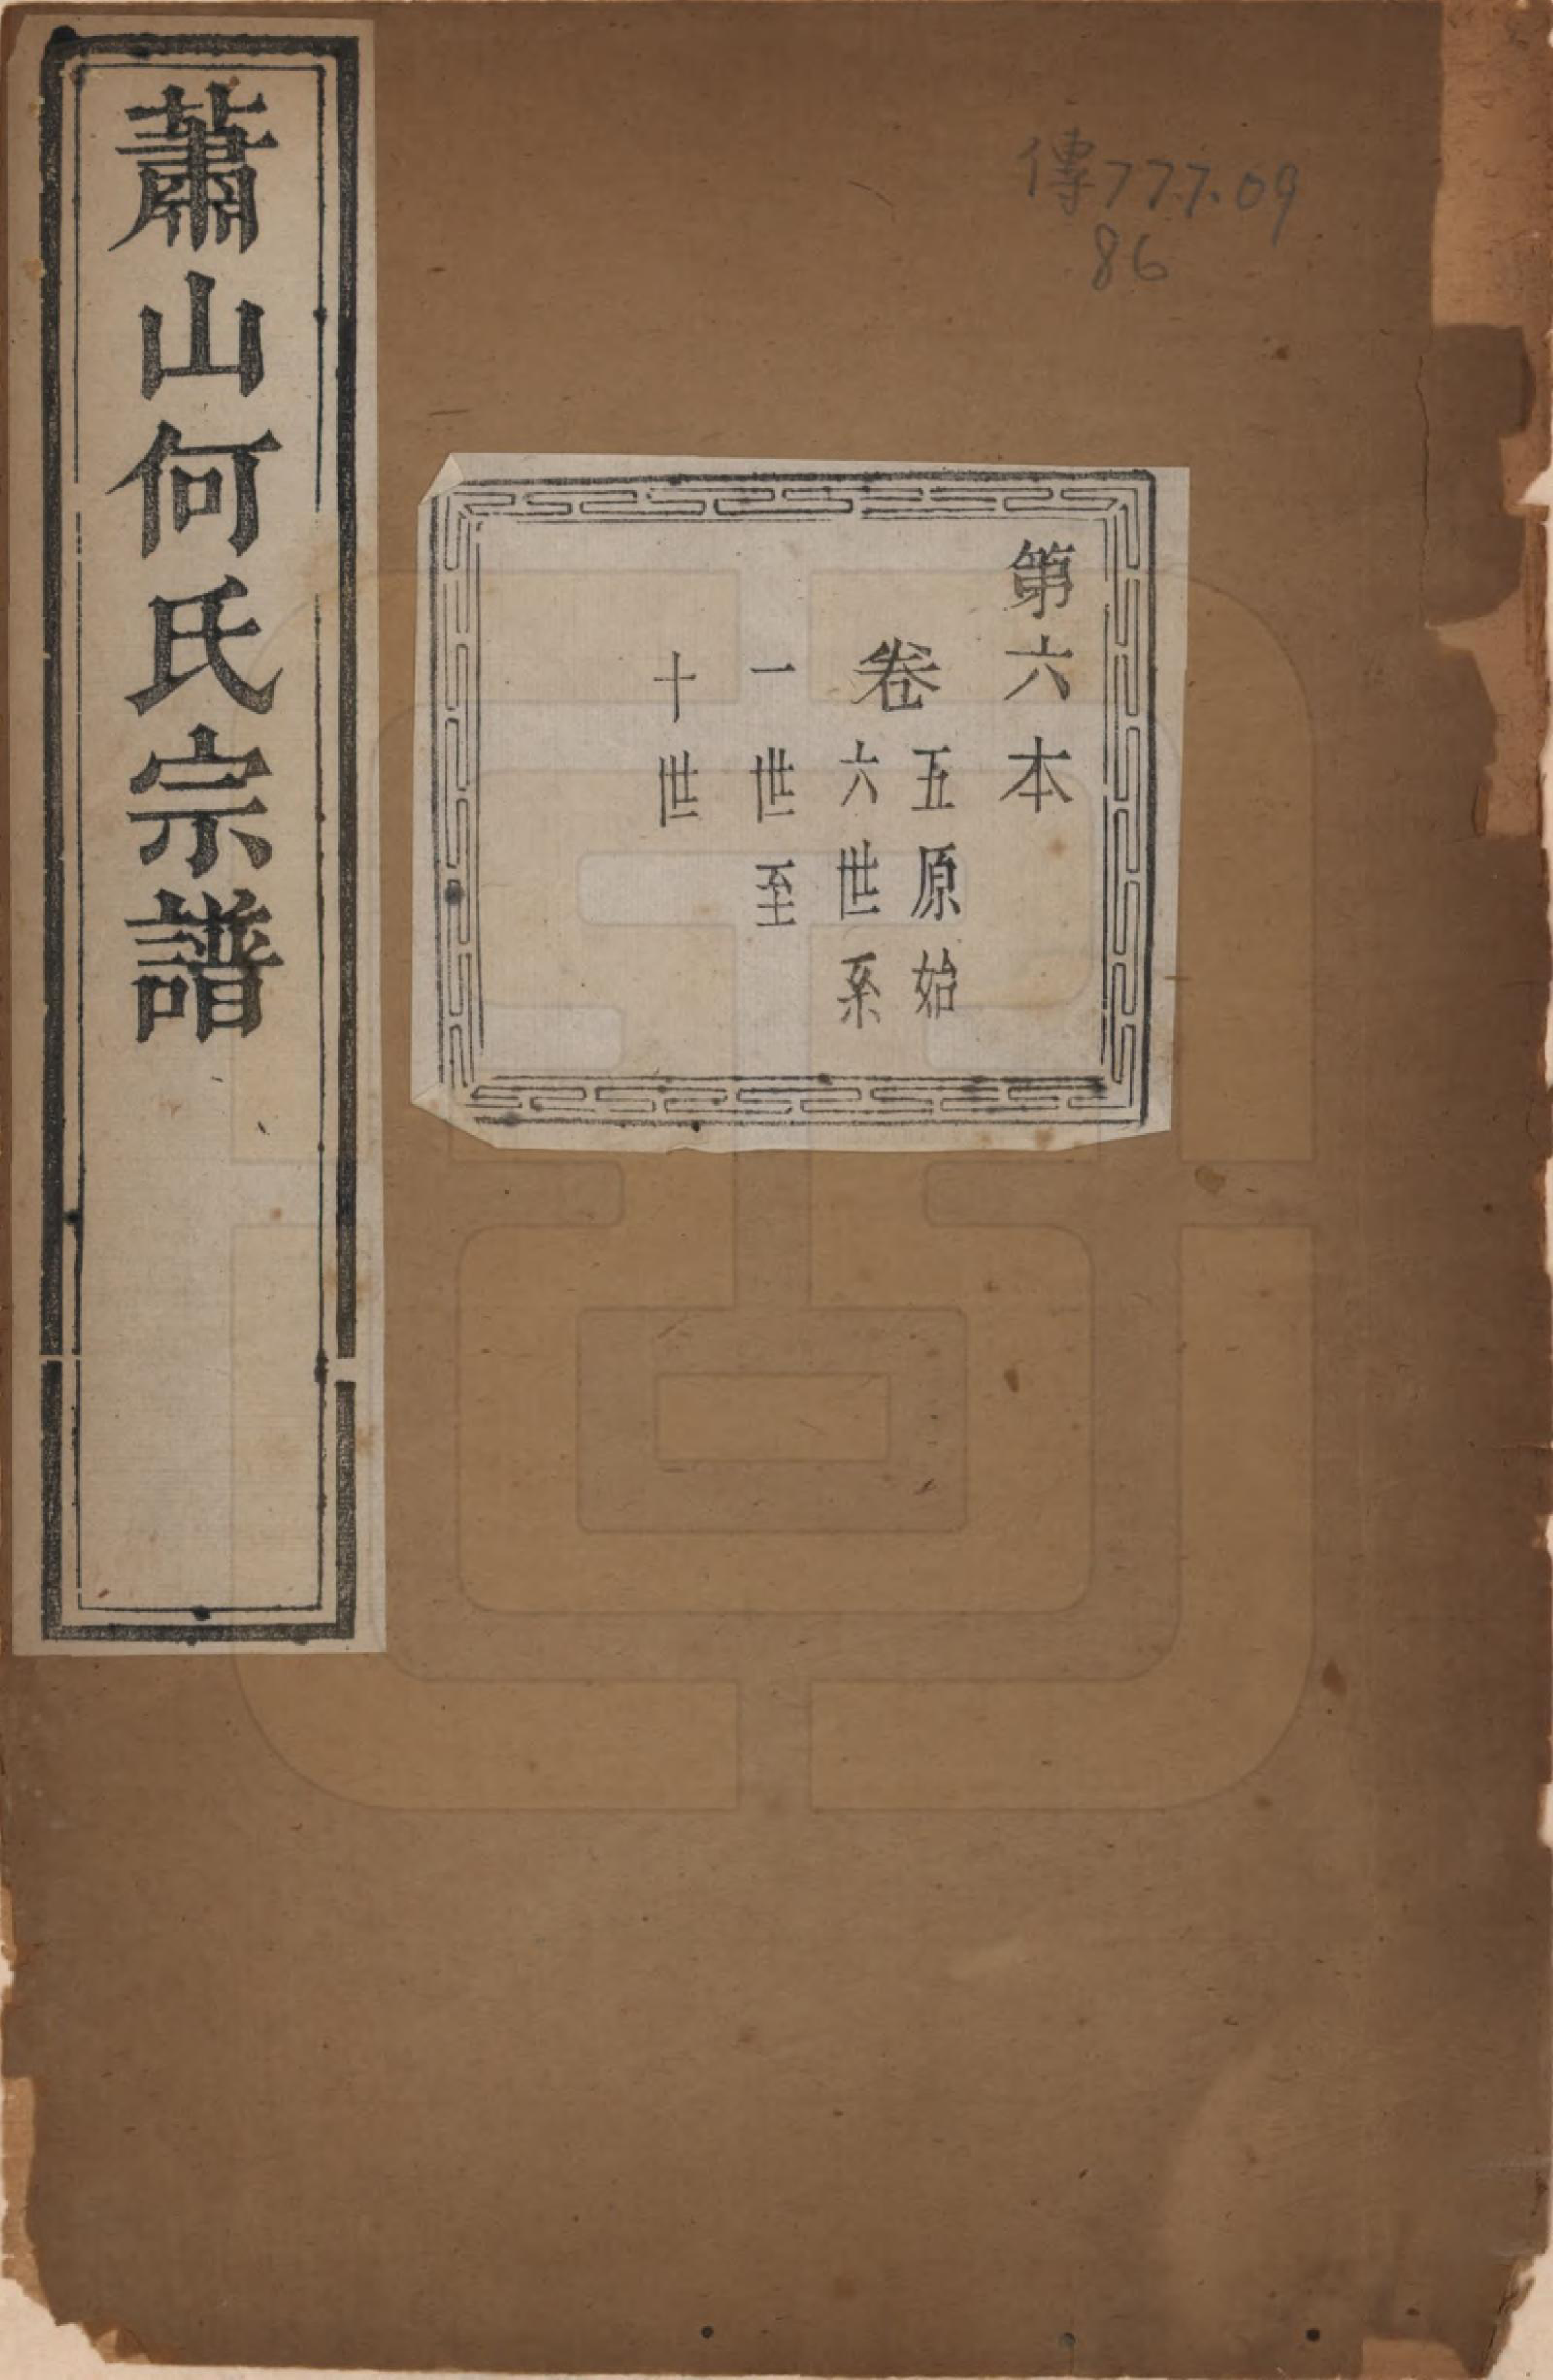 傳777.09
86
第六本
卷
五原始
六世系
一世至
十世
蕭山何氏宗譜